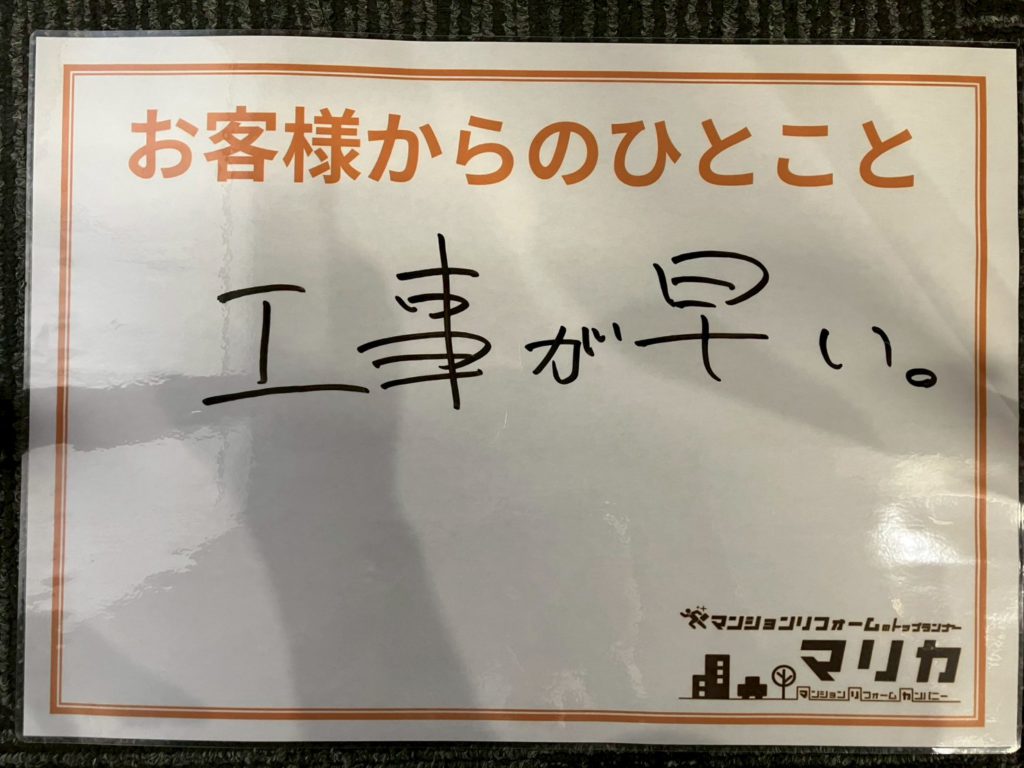 お客様からのひとこと
工事が早い。
マンションリフォームのトップランナー
マリカ
マンションリフォームカンパニー